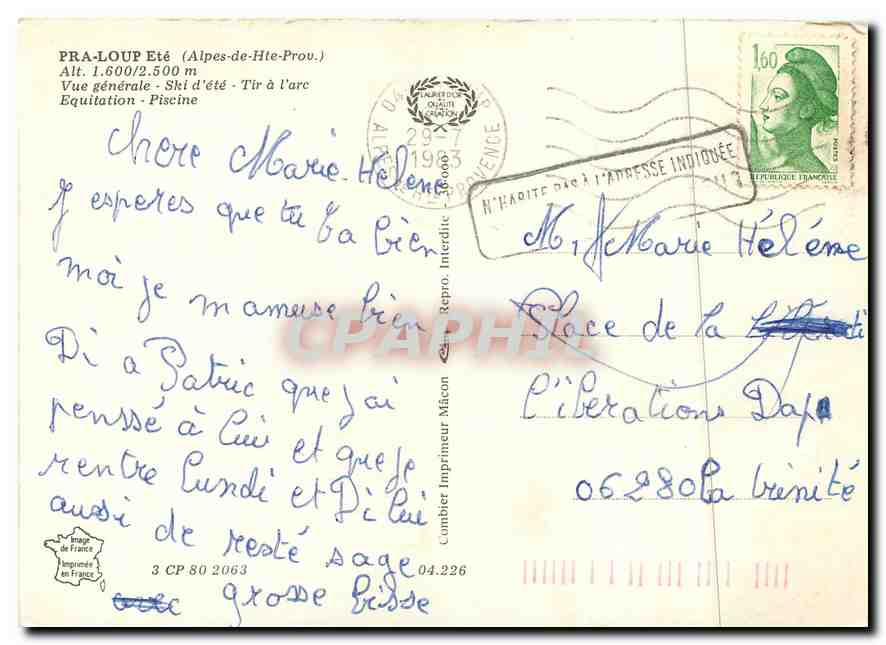 PRA-LOUP Eté (Alpes-de-Hte-Prov.)
Alt. 1.600/2.500 m
Vue générale - Ski d'été - Tir à l'arc
Equitation - Piscine
LAURIER D'OR
QUALITE
CREATION
29-7
1983
PROVENCE
N'HABITE PAS À L'ADRESSE INDIQUÉE
1,60
POSTES
REPUBLIQUE FRANÇAISE
Chere Marie-Hélene
J esperes que tu Va bien
moi je m amuse bien
Di a Patric que j'ai
penssé à lui et que je
rentre lundi et Di lui
aussi de resté sage
grosse bisse
M, Marie Hélène
Place de la
libérations
06280 la trinité
Combier Imprimeur Mâcon
Repro. Interdite
CPAPHIL
Image
de France
Imprimée
en France
3 CP 80 2063
04.226